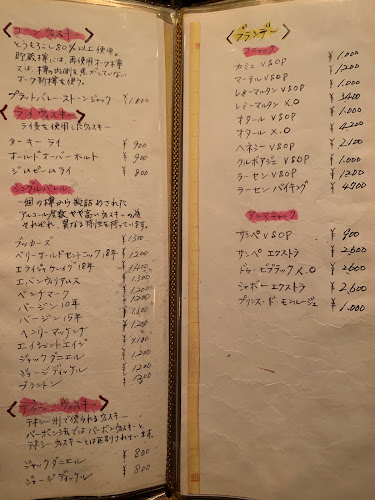 コーン ウィスキー
とうもろこし80%以上使用。
貯蔵樽には、再使用オーク樽
又は、樽の内側を焦がしていない
オーク新樽を使う。
プラットバレーストーンジャグ ¥1.800
ライウィスキー
ライ麦を使用したウィスキー
ターキー ライ ¥900
オールド オーバー ホルト ¥900
ジムビームライ ¥800
シングルバレル
一個の樽から瓶詰めされた
アルコール度数やや高いウィスキー
異なる特性を持っています。
ブッカーズ ¥1300
ベリーオールドセントニック18年 ¥1200
エライジャクレイグ18年 ¥1400
エバンウィリアムス ¥1300
ペンデマーク ¥1200
バージン10年
バージン15年 ¥1200
ヘンリーマッケンナ
エインシェントエイジ
ジャックダニエル ¥1200
ジョージディッケル ¥1200
ブラントン
テネシー ウィスキー
テネシー州で使られるウィスキー
バーボン法ではバーボンウィスキーと
テネシーウィスキーとは区別されています。
ジャックダニエル ¥800
ジョージディッケル ¥800
ブランデー
コニャック
カミュ VSOP ¥1.000
マーテル VSOP ¥1200
レミーマルタン VSOP ¥1.000
レミーマルタン X.O ¥3400
オタール VSOP ¥1.000
オタール X.O ¥4200
ヘネシー VSOP ¥2100
クルボアジェ VSOP ¥1.000
ラーセン VSOP ¥1200
ラーセン バイキング ¥4700
アルマニャック
サンペ VSOP ¥900
サンペ エクストラ ¥2.500
ドゥ・ビグラック X.O ¥2.600
ジャボー エクストラ ¥2.600
プリンス・ド・モンルージュ ¥1.000